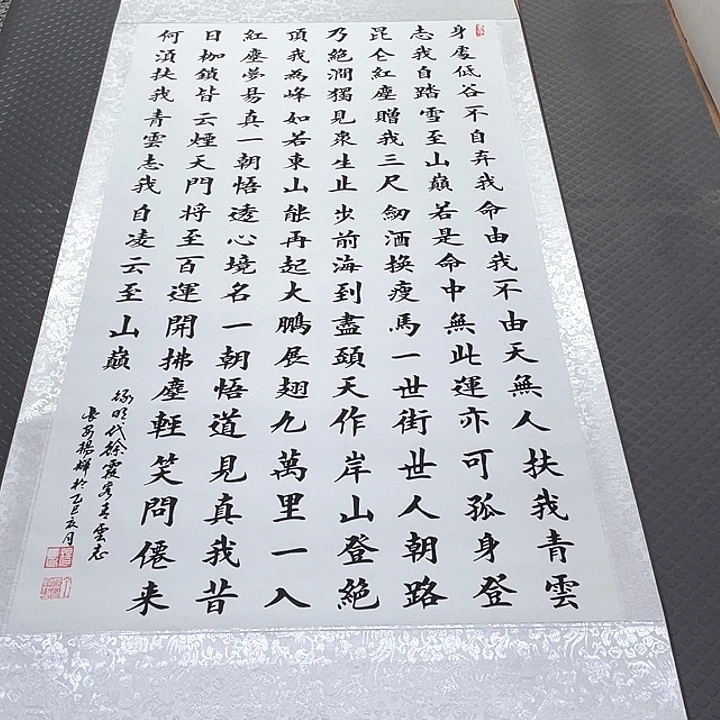 身處低谷不自弃我命由我不由天無人扶我青雲
志我自踏雪至山巔若是命中無此運亦可孤身登
昆仑紅塵贈我三尺釼酒換瘦馬一世街世人朝路
乃絕澗獨見衆生止步前海到盡頭天作岸山登絕
頂我為峰如若東山能再起大鵬展翅九萬里一入
紅塵夢易真一朝悟透心境名一朝悟道見真我昔
日枷鎖皆云煙天門将至百運開拂塵輕笑問僊来
何須扶我青雲志我自凌云至山巔
錄明代徐霞客青雲志
長安楊輝於乙巳夏月